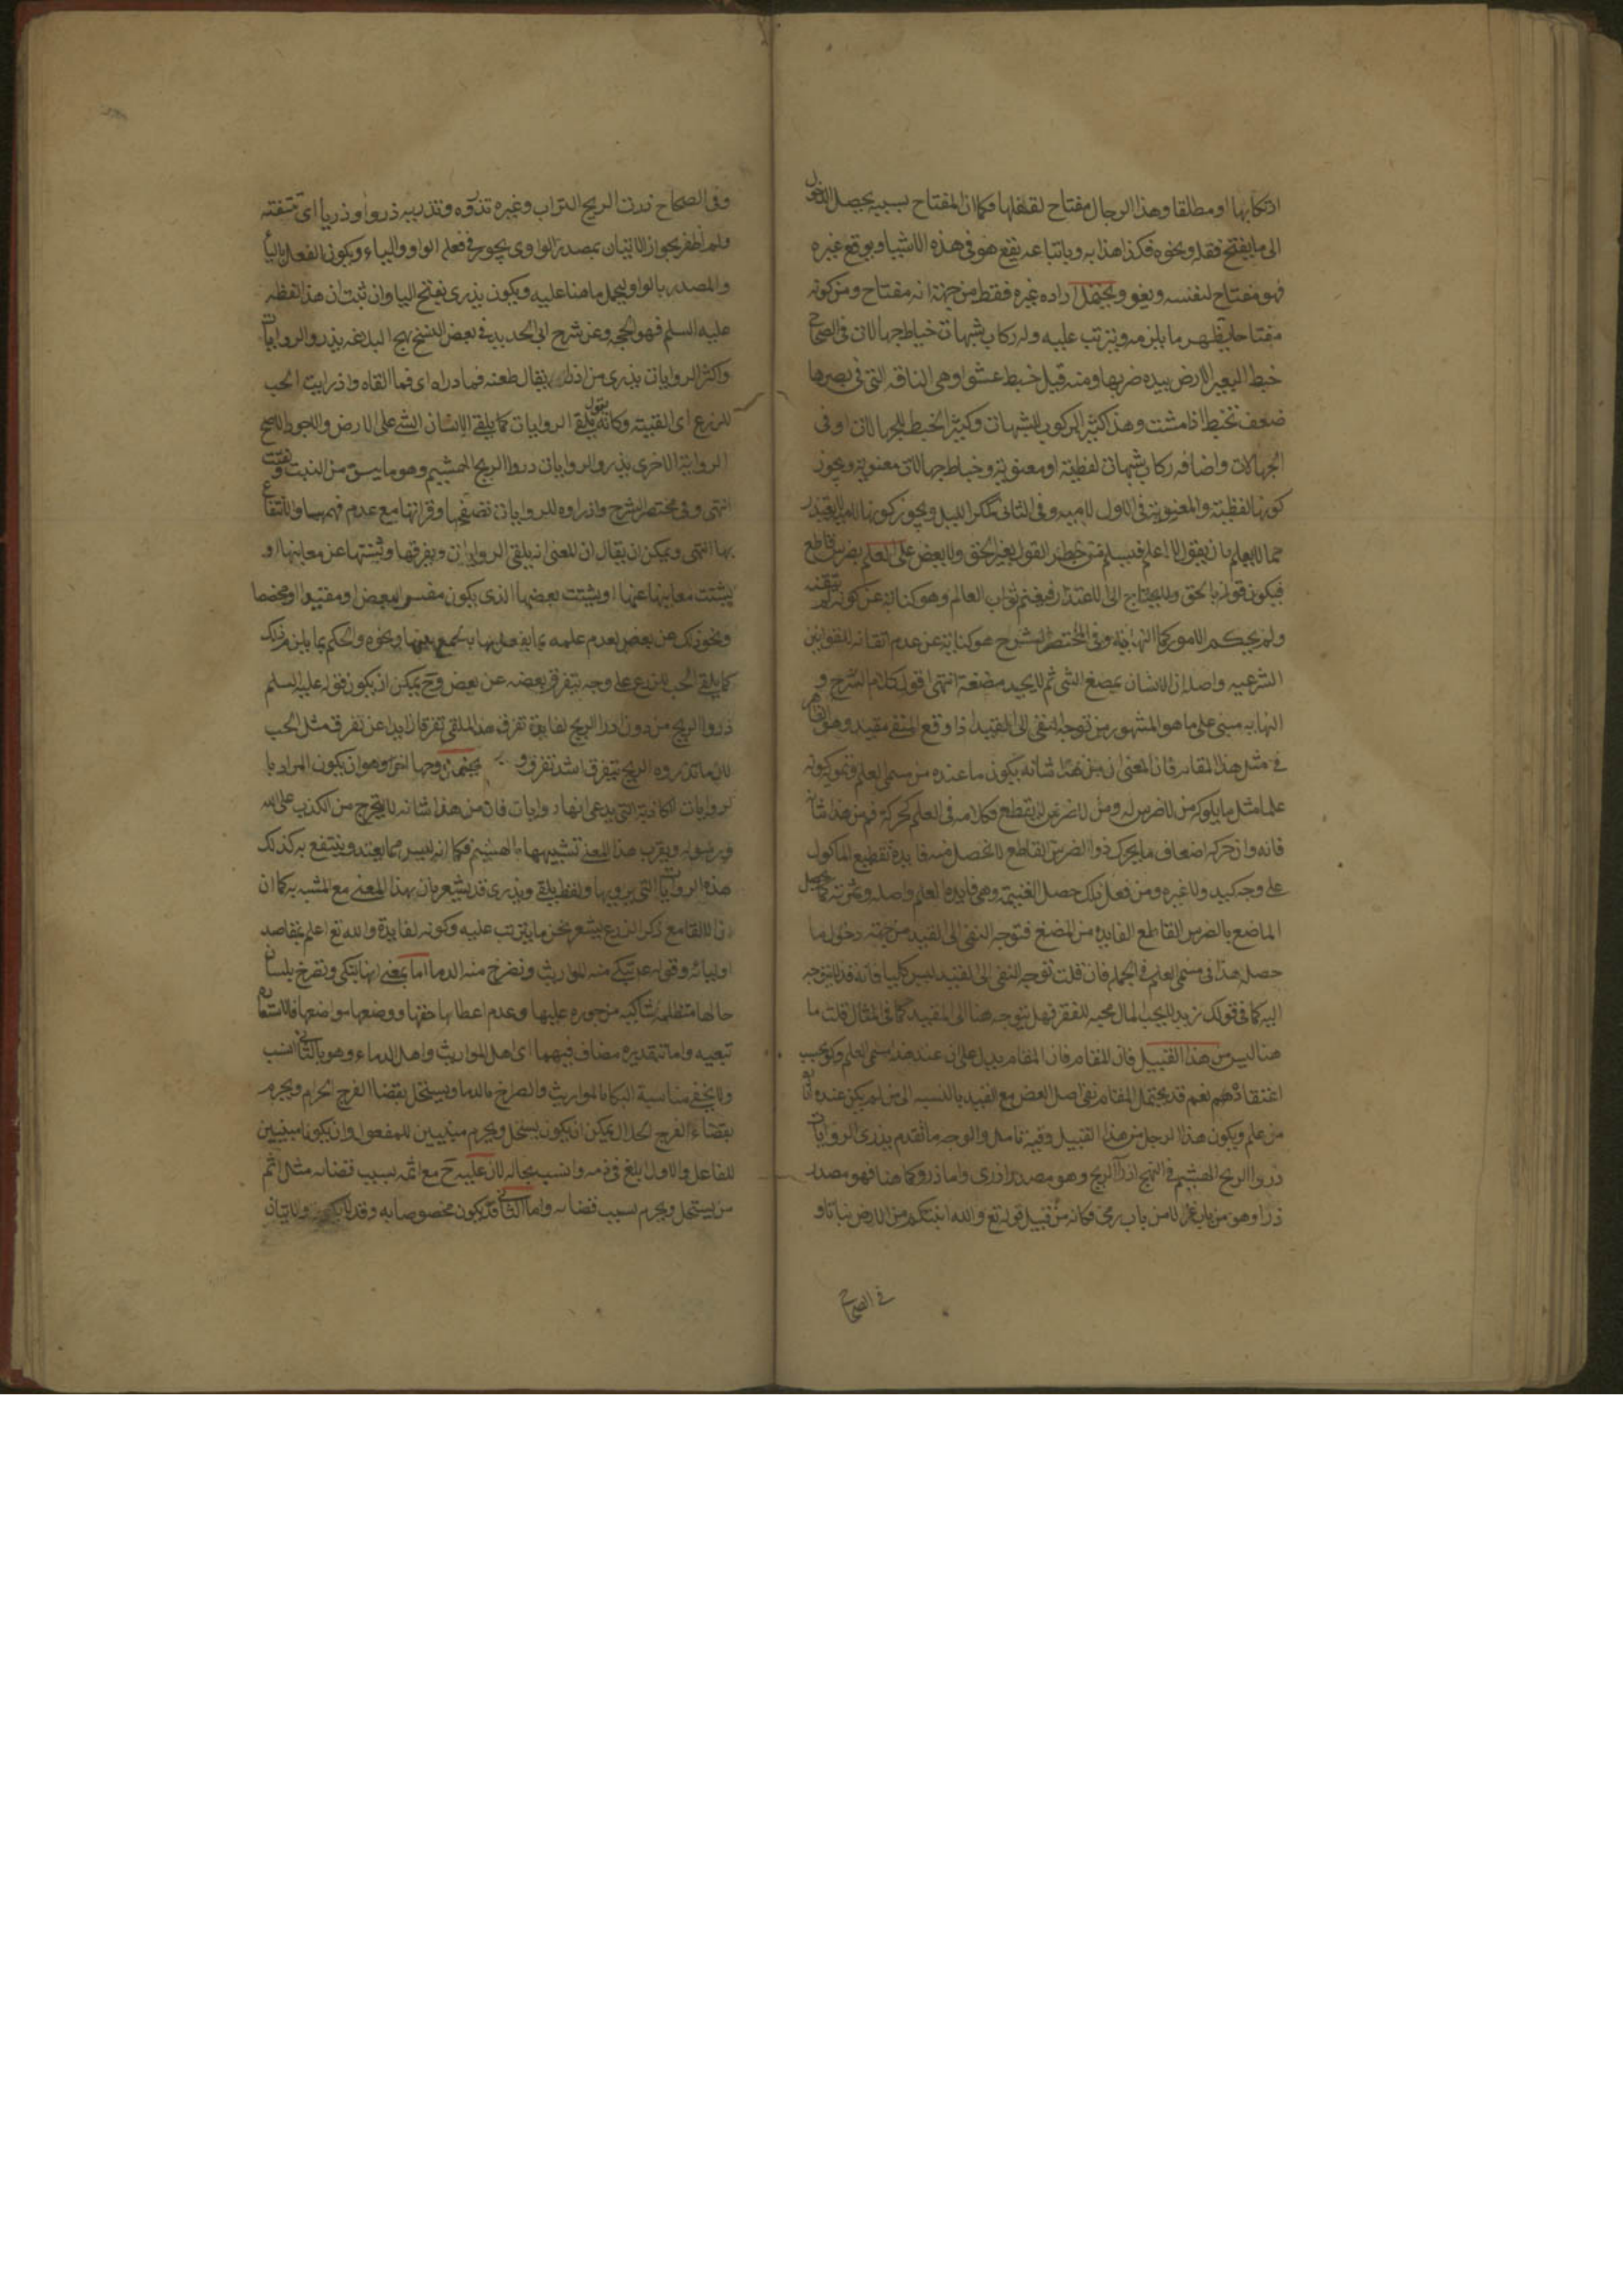 ارتكابها او مطلقا وهذا الرجال مفتاح لقفلها فكما ان المفتاح بسببه يحصل الدخول
الى ما يفتح قفله ونحوه فكذا هذا به وباتباعه يقع هو في هذه الاشيا ويوقع غيره
فهو مفتاح لنفسه وغيره ويحتمل اراده غيره فقط من جهة انه مفتاح ومن كونه
مفتاحا يظهر ما يلزمه ويترتب عليه وله ركاب شبهات خباط جهالات في الصحاح
خبط البعير الارض بيده ضربها ومنه قيل خبط عشوا وهي الناقه التي في بصرها
ضعف تخبط اذا مشت وهذا كثير الركوب للشبهات وكثير الخبط للجهالات او في
الجهالات واضافه ركاب شبهات لفظية او معنوية وخباط جهالات معنوية ويجوز
كونها لفظية والمعنوية في الاول لاميه وفي الثاني كمكر الليل ويجوز كونها لاميه
مما لا يعلم بان يقول لا اعلم فيسلم من خطر القول بغير الحق ولا يعض على العلم بضرس قاطع
فيكون قوله بالحق ولا يحتاج الى الاعتذار فيغنم ثواب العالم وهو كناية عن كونه لم يتقنه
ولم يحكم الامور كما في النهايه وفي المختصر الشرح هو كناية عن عدم اتقانه للقوانين
الشرعيه واصله ان الانسان يمضغ الشي ثم لا يجيد مضغه انتهى اقول كلام الشرح و
النهايه مبني على ما هو المشهور من توجه النفي الى القيد اذا وقع المنفي مقيد وهو الظاهر
في مثل هذا المقام فان المعنى ان من هذا شانه يكون ما عنده من مسمى العلم
علما مثل ما يلوكه من لا ضرس له ومن لا ضرس له لا يقطع فكلامه في العلم كحركة فم من هذا شانه
فانه وان حركه اضعاف ما يحرك ذو الضرس القاطع لا تحصل منه فايدة تقطيع الماكول
على وجه كبيد ولا غيره ومن فعل ذلك حصل الغنيمة وهي فايدة العلم واصله وثمرته كما يحصل
الماضغ بالضرس القاطع الفايدة من المضغ فتوجه النفي الى القيد من جهة دخول ما
حصل هذا في مسمى العلم في الجمله فان قلت توجه النفي الى القيد ليس كليا فانه قد لا يتوجه
اليه كما في قولك زيد لا يحب المال محبه للفقر فهل يتوجه هنا الى المقيد كما في المثال قلت ما
هنا ليس من هذا القبيل فان المقام يدل على ان عند هذا مسمى العلم ولو بحسب
اعتقادهم نعم قد يحتمل المقام نفي اصل العض مع القيد بالنسبه الى من لم يكن عنده اثارة
من علم ويكون هذا الرجل من هذا القبيل وفيه تامل والوجه ما تقدم يذري الروايات
ذرو الريح الهشيم في النهج اذرا الريح وهو مصدر اذرى واما ذرو كما هنا فهو مصدر
ذرا وهو من باب غزا لا من باب رمى فكانه من قبيل قوله تع والله انبتكم من الارض نباتا و
في الصحاح
وفي الصحاح ذرت الريح التراب وغيره تذروه وتذريه ذروا وذريا اي نسفته
ولم اظفر بجواز الاتيان بمصدر الواوي يجوز في فعله الواو والياء ويكون الفعل بالياء
والمصدر بالواو ليحمل ما هنا عليه ويكون يذري بفتح اليا وان ثبت ان هذا لفظه
عليه السلم فهو الحجه وعن شرح ابي الحديد في بعض النسخ نهج البلاغه يذرو الروايات
واكثر الروايات يذري من اذرى يقال طعنه فما ذراه اي فما القاه واذرايت الحب
للزرع اي القيته وكانه يقول يلقي الروايات كما يلقي الانسان الشي على الارض والاجود الاصح
الرواية الاخرى يذرو الروايات ذروا الريح الهشيم وهو ما يبس من النبت وتفتت
انتهى وفي مختصر الشرح واذراوه للروايات تصفحها وقراتها مع عدم فهمها والانتفاع
بها انتهى ويمكن ان يقال ان المعنى انه يلقي الروايات ويفرقها ويشتتها عن معاينها او
يشتت معاينها عنها او يشتت بعضها الذي يكون مفسر البعض او مقيدا او مخصصا
ونحو ذلك عن بعض لعدم علمه بما يفعل بها بالجمع بينها ونحوه والحكم بما يلزم ذلك
كما يلقي الحب للزرع على وجه يتفرق بعضه عن بعض وح يمكن ان يكون قوله عليه السلم
ذروا الريح من دون اذرا الريح لفايدة تفرق هذا الملقي تفرقا زايدا عن تفرق مثل الحب
لان ما تذروه الريح يتفرق اشد تفرق و يحتمل وجها اخر وهو ان يكون المراد با
لروايات الكاذبة التي يدعي انها روايات فان من هذا شانه لا يتحرج من الكذب على الله
ورسوله ويقرب هذا المعنى تشبيهها بالهشيم فكما انه ليس مما يعتد وينتفع به كذلك
هذه الروايات التي يرويها ولفظ يلقي ويذري قد يشعر بان بهذا المعنى مع المشبه به كما ان
ذا الالقا مع ذكر الزرع يشعر بنحو ما يترتب عليه وكونه لفايدة والله تع اعلم بمقاصد
اوليائه وقوله ع تبكي منه المواريث وتصرخ منه الدما اما بمعنى انها تبكي وتصرخ بلسان
حالها متظلمة شاكيه من جوره عليها وعدم اعطائها حقها ووضعها مواضعها فالاستعارة
تبعيه واما بتقديره مضاف فيهما اي اهل المواريث واهل الدماء وهو بالثاني انسب
ولا يخفى مناسبة البكا بالمواريث والصراخ بالدما ويستحل بقضا الفرج الحرام ويحرم
بقضاء الفرج الحلال يمكن ان يكون يستحل ويحرم مبنيين للمفعول وان يكونا مبنيين
للفاعل والاول ابلغ في ذمه وانسب بحاله لان عليه ح مع اثمه بسبب قضائه مثل اثم
من يستحل ويحرم بسبب قضائه واما الثاني فقد يكون مخصوصا به وقد لا يكون والاتيان